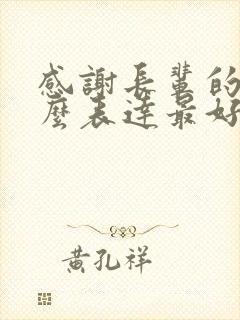 感謝長輩的
麼表達最好
黃孔祥